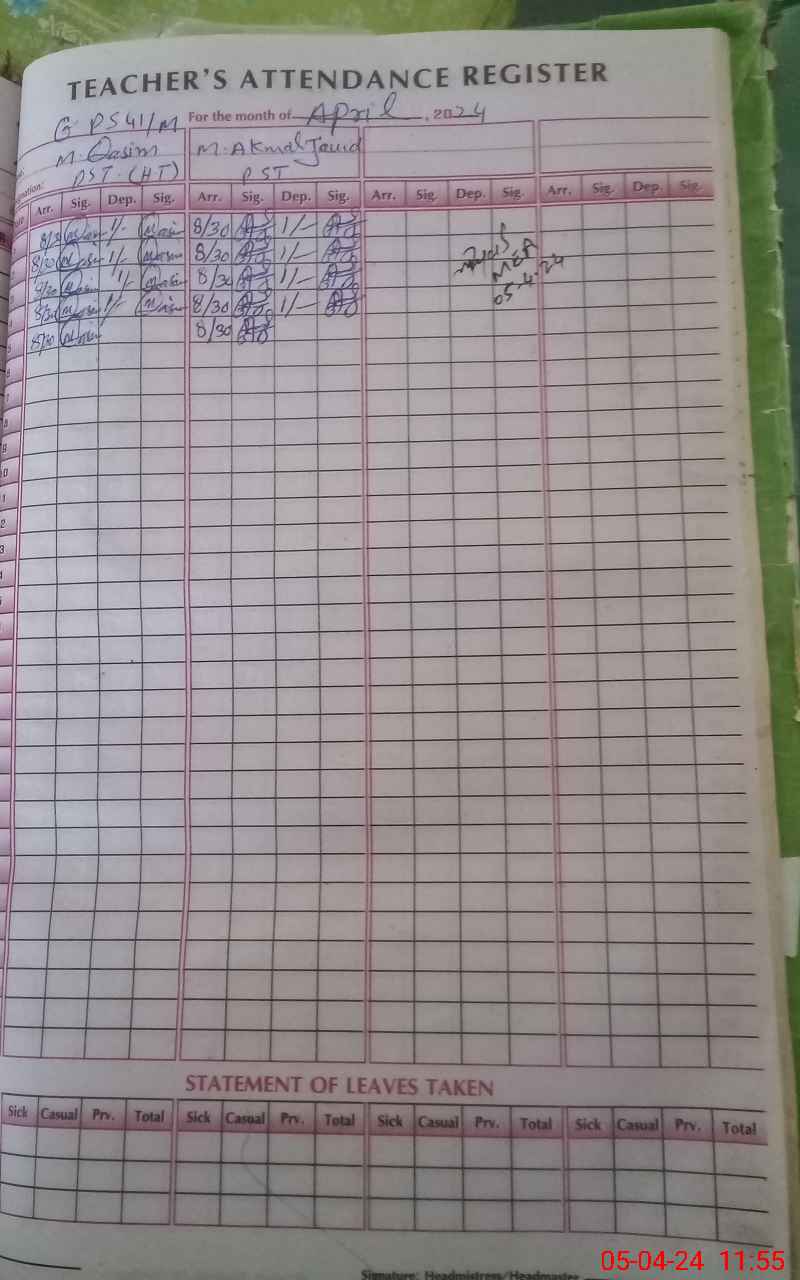 TEACHER'S ATTENDANCE REGISTER
G PS 41/M For the month of April, 2024
M. Qasim M. Akmal Javid
PST (HT) PST
Arr. Sig. Dep. Sig. Arr. Sig. Dep. Sig. Arr. Sig. Dep. Sig. Arr. Sig. Dep. Sig.
8/30 1/- 8/30 1/-
8/30 1/- 8/30 1/-
8/30 1/- 8/30 1/-
8/30 1/- 8/30 1/-
8/30 8/30
MEA
05-4-24
STATEMENT OF LEAVES TAKEN
Sick Casual Prv. Total Sick Casual Prv. Total Sick Casual Prv. Total Sick Casual Prv. Total
Signature: Headmistress/Headmaster
05-04-24 11:55